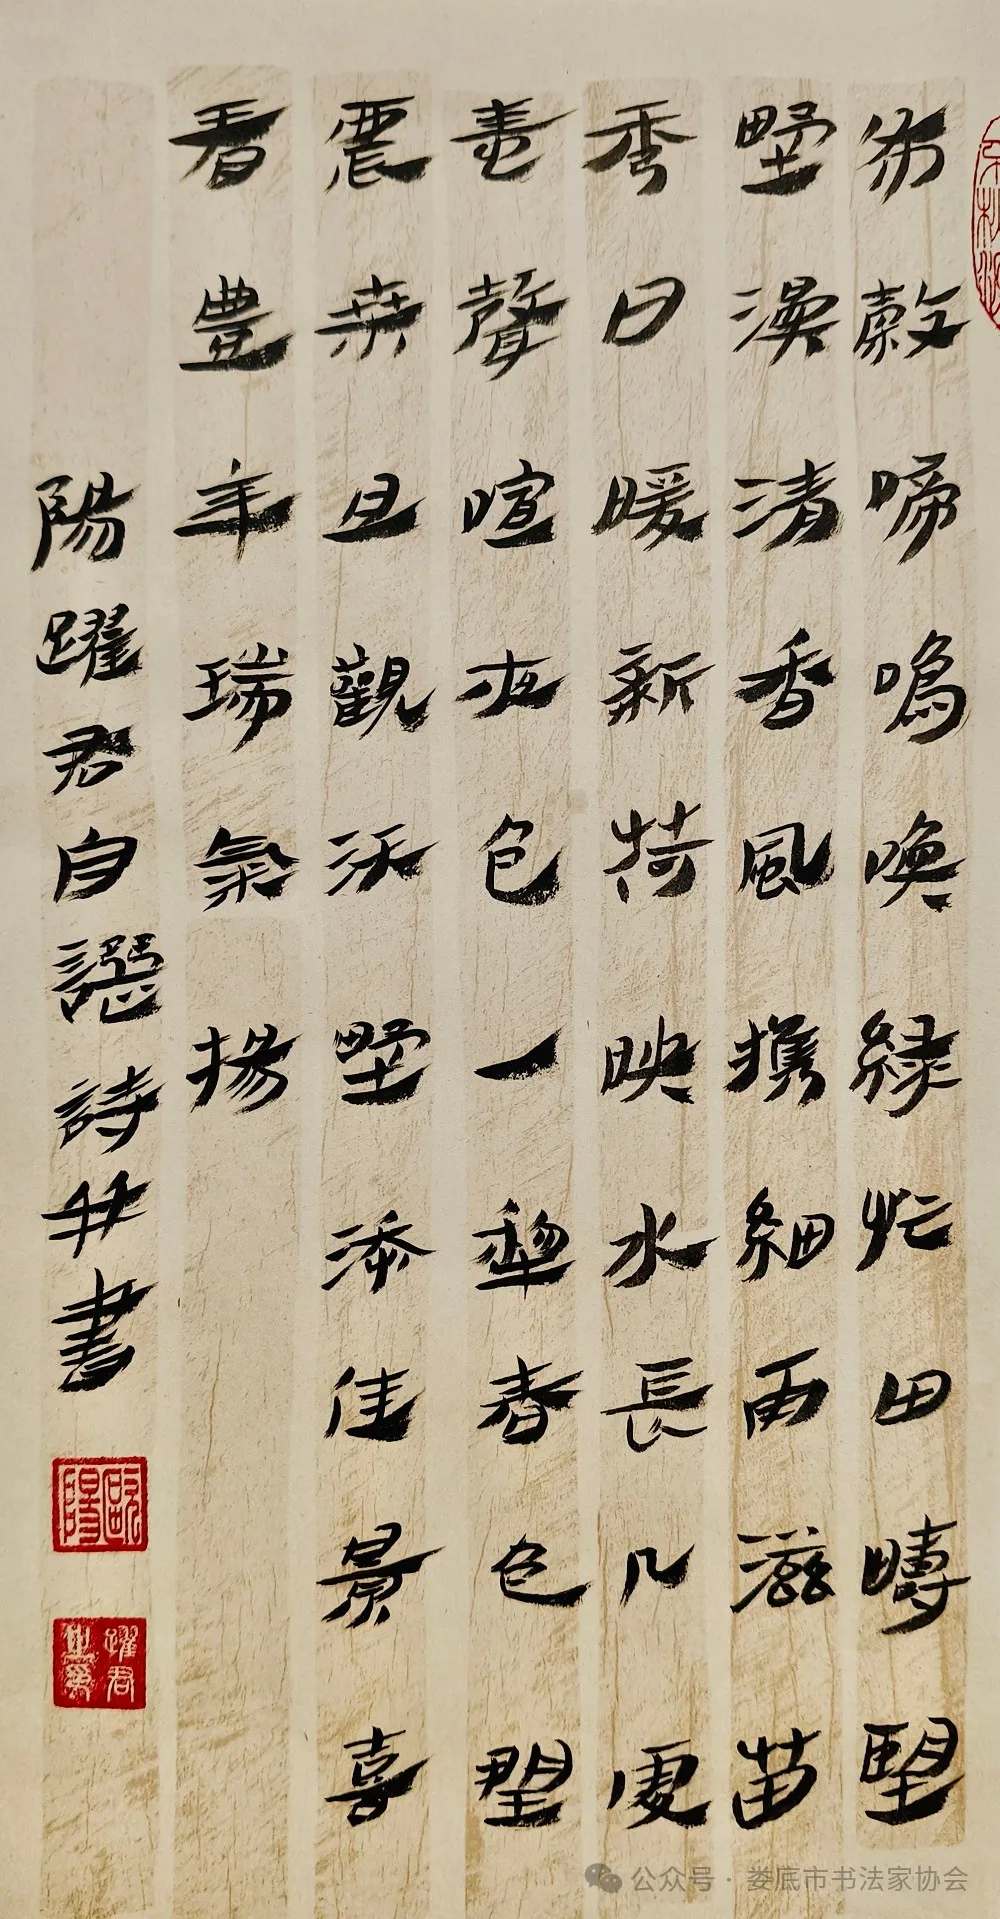 布穀啼鳴喚綠忙田疇望
野漫清香風攜細雨滋苗
秀日暖新荷映水長几處
蛙聲喧夜色一犁春色望
農桑且觀沃野添佳景喜
看豐年瑞氣揚
陽躍君自譔詩并書
歐陽
躍君
公众号·娄底市书法家协会